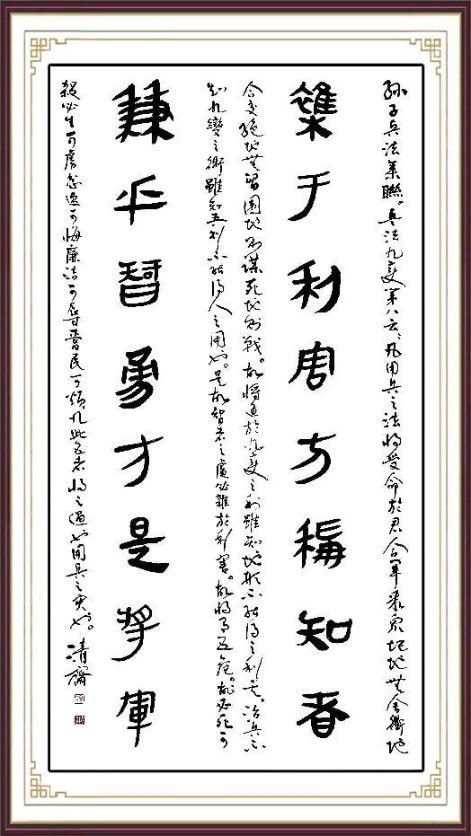 孙子兵法集聯。兵法九变第八云、凡用兵之法将受命於君合军聚众圮地無舍衢地
雜于利害方稱知者
合交絕地無留圍地則謀死地則戰。故將通於九变之利雖知地形不能得之利矣。治兵不
知九變之術雖知五利不能得人之用也。是故智者之慮必雜於利害。故将有五危。故必死可
兼乎智勇才是將軍
殺必生可虜忿速可侮廉洁可辱愛民可煩凡此五者将之過也用兵之灾也。清齋